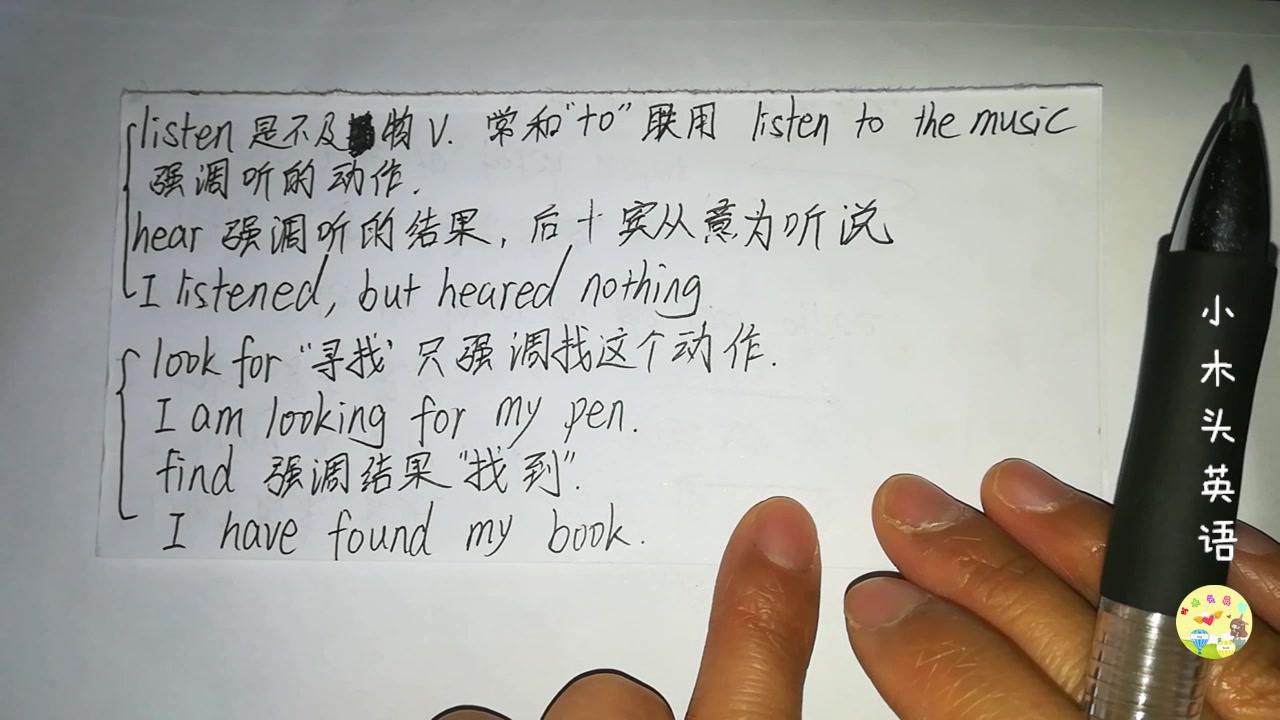 listen 是不及物 V. 常和“to”联用 listen to the music
强调听的动作.
hear 强调听的结果, 后+宾从意为听说
I listened, but heared nothing.
look for “寻找” 只强调找这个动作.
I am looking for my pen.
find 强调结果“找到”.
I have found my book.
小木头英语